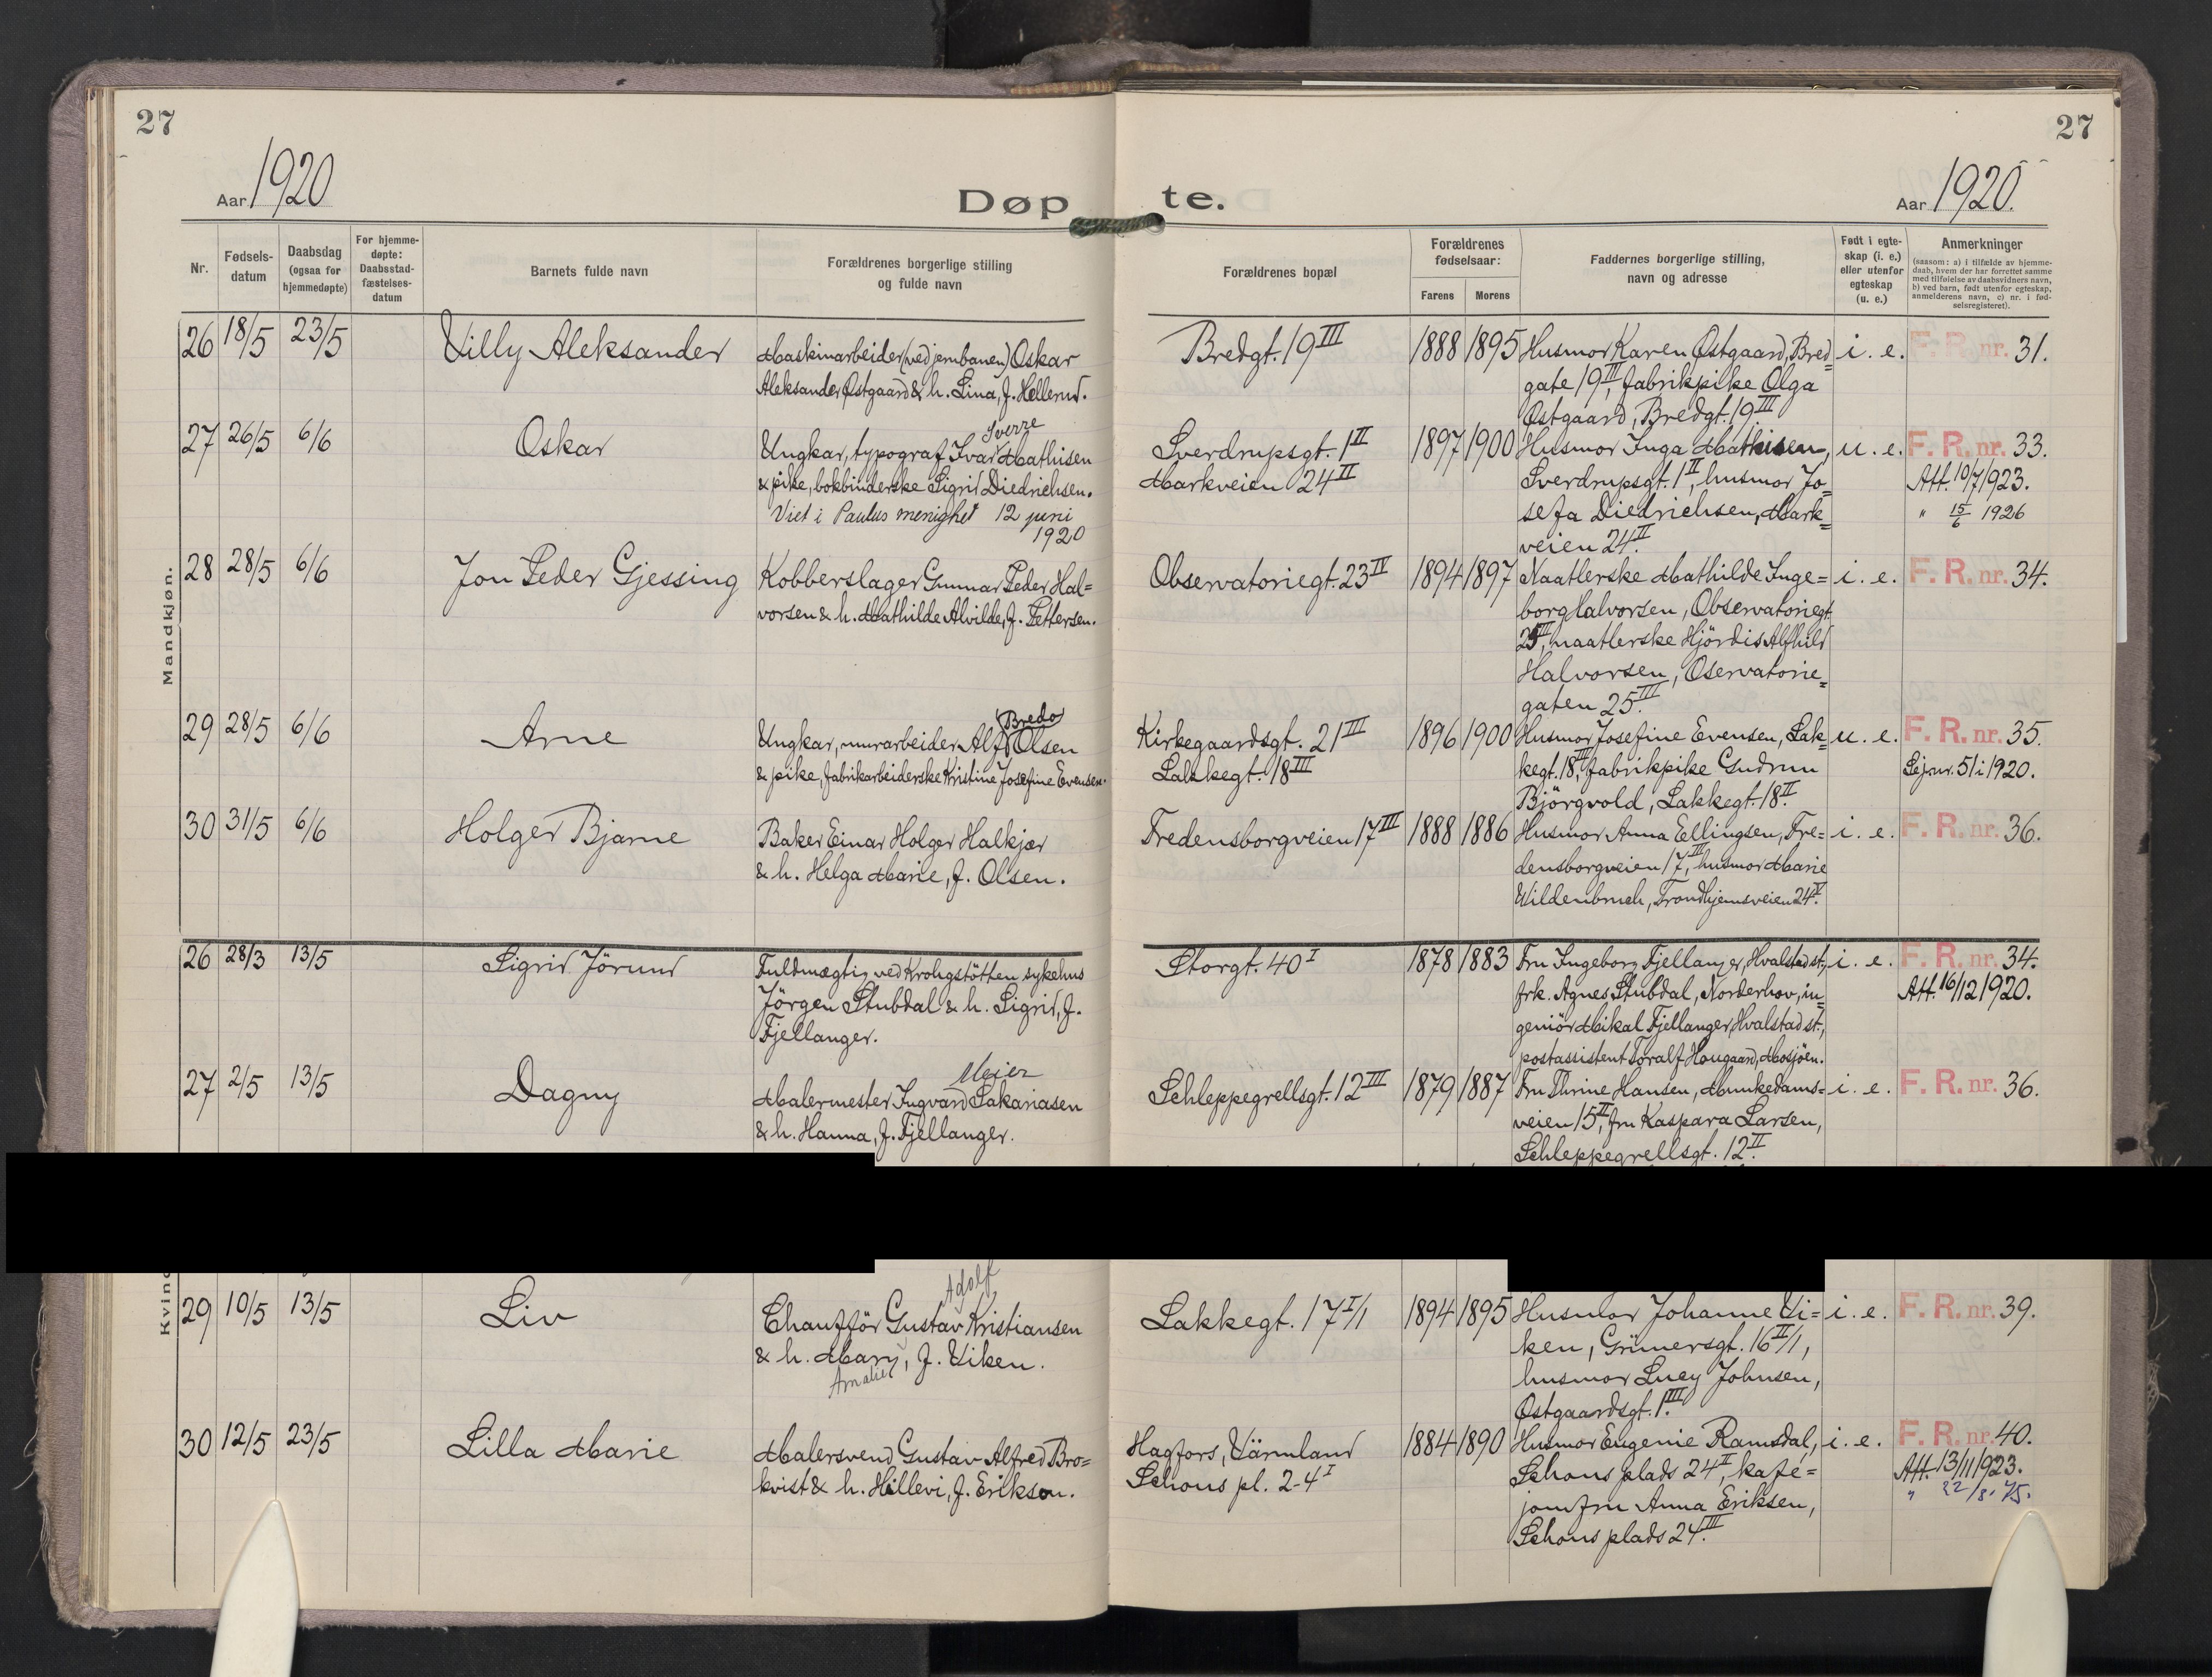 27
27
Aar 1920
Døpte.
Aar 1920.
Nr.
Fødsels-
datum
Daabsdag
(ogsaa for
hjemmedøpte)
For hjemme-
døpte:
Daabsstad-
fæstelses-
datum
Barnets fulde navn
Forældrenes borgerlige stilling
og fulde navn
Forældrenes bopæl
Forældrenes
fødselsaar:
Farens
Morens
Faddernes borgerlige stilling,
navn og adresse
Født i egte-
skap (i. e.)
eller utenfor
egteskap
(u. e.)
Anmerkninger
(saasom: a) i tilfælde av hjemme-
daab, hvem der har forrettet samme
med tilføielse av daabsvidners navn,
b) ved barn, født utenfor egteskap,
anmelderens navn, c) nr. i fød-
selsregisteret).
Mandkjøn.
26 18/5 23/5
Villy Aleksander
Maskinarbeider (ved jernbanen) Oskar
Aleksander Østgaard & h. Lina, f. Hellerud.
Bredgt. 19 III
1888 1895
Husmor Karen Østgaard, Bred=
gate 19 III, fabrikpike Olga
Østgaard, Bredgt. 19 III
i. e.
F. R. nr. 31.
27 26/5 6/6
Oskar
Sverre
Ungkar, typograf Ivar Mathisen
& pike, bokbinderske Sigrid Diedrichsen.
Viet i Paulus menighet 12 juni
1920
Sverdrupsgt. 1 II
Markveien 24 II
1897 1900
Husmor Inga Mathisen,
Sverdrupsgt. 1 II, husmor Jo=
sefa Diedrichsen, Mark=
veien 24 II.
u. e.
F. R. nr. 33.
Att. 10/7 1923.
" 15/6 1926
28 28/5 6/6
Jon Peder Gjessing
Kobberslager Gunnar Peder Hal=
vorsen & h. Mathilde Alvilde, f. Pettersen.
Observatoriegt. 23 IV
1894 1897
Naatlerske Mathilde Inge=
borg Halvorsen, Observatoriegt.
25 III, naatlerske Hjördis Alfhild
Halvorsen, Oservatorie=
gaten 25 III.
i. e.
F. R. nr. 34.
29 28/5 6/6
Arne
Bredo
Ungkar, murarbeider Alf Olsen
& pike, fabrikarbeiderske Kristine Josefine Evensen.
Kirkegaardsgt. 21 III
Lakkegt. 18 III
1896 1900
Husmor Josefine Evensen, Lak=
kegt. 18 III, fabrikpike Gudrun
Björgvold, Lakkegt. 18 II.
u. e.
F. R. nr. 35.
Lej.nr. 51 i 1920.
30 31/5 6/6
Holger Bjarne
Baker Einar Holger Halkjær
& h. Helga Marie, f. Olsen.
Fredensborgveien 17 III
1888 1886
Husmor Anna Ellingsen, Fre=
densborgveien 17 III, husmor Marie
Wildenbruch, Trondhjemsveien 24 V.
i. e.
F. R. nr. 36.
26 28/3 13/5
Sigrid Jörund
Fuldmægtig ved Krohgstötten sykehus
Jörgen Stubdal & h. Sigrid, f.
Fjellanger.
Storgt. 40 I
1878 1883
Fru Ingeborg Fjellanger, Hvalstad st.,
frk. Agnes Stubdal, Norderhov, in=
geniör Mikal Fjellanger, Hvalstad st.,
postassistent Toralf Hougaard, Mosjöen.
i. e.
F. R. nr. 34.
Att. 16/12 1920.
27 2/5 13/5
Dagny
Meier
Malermester Ingvard Sakariasen
& h. Hanna, f. Fjellanger.
Schleppegrellsgt. 12 III
1879 1887
Fru Thrine Hansen, Munkedams=
veien 15 II, fru Kaspara Larsen,
Schleppegrellsgt. 12 II.
i. e.
F. R. nr. 36.
Kvin
29 10/5 13/5
Liv
Adolf
Chauffør Gustav Kristiansen
& h. Mary, f. Viken.
Amalie
Lakkegt. 17 I/1
1894 1895
Husmor Johanne Vi=
ken, Grünersgt. 16 II/1,
husmor Lucy Johnsen,
Østgaardsgt. 1 III.
i. e.
F. R. nr. 39.
30 12/5 23/5
Lilla Marie
Malersvend Gustav Alfred Bro=
kvist & h. Hillevi, f. Erikson.
Hagfors, Värmland
Schous pl. 2-4 I
1884 1890
Husmor Eugenie Ramsdal,
Schous plads 24 I, kafé=
jomfru Anna Eriksen,
Schous plads 24 III.
i. e.
F. R. nr. 40.
Att. 13/11 1923.
" 22/8. 75.